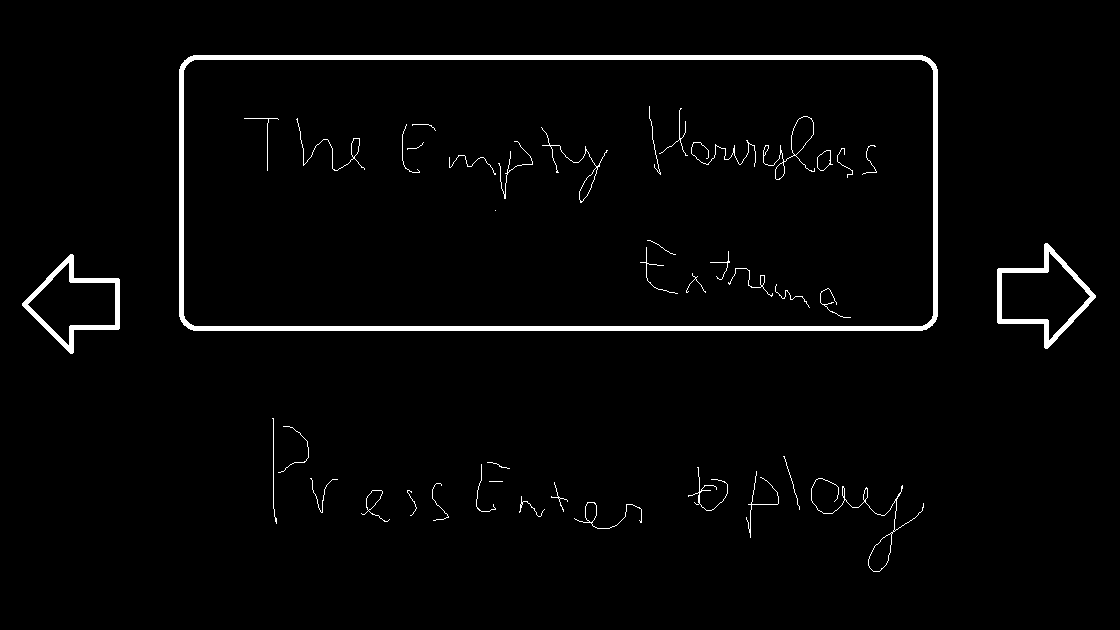 The Empty Hourglass
Extreme
Press Enter to play